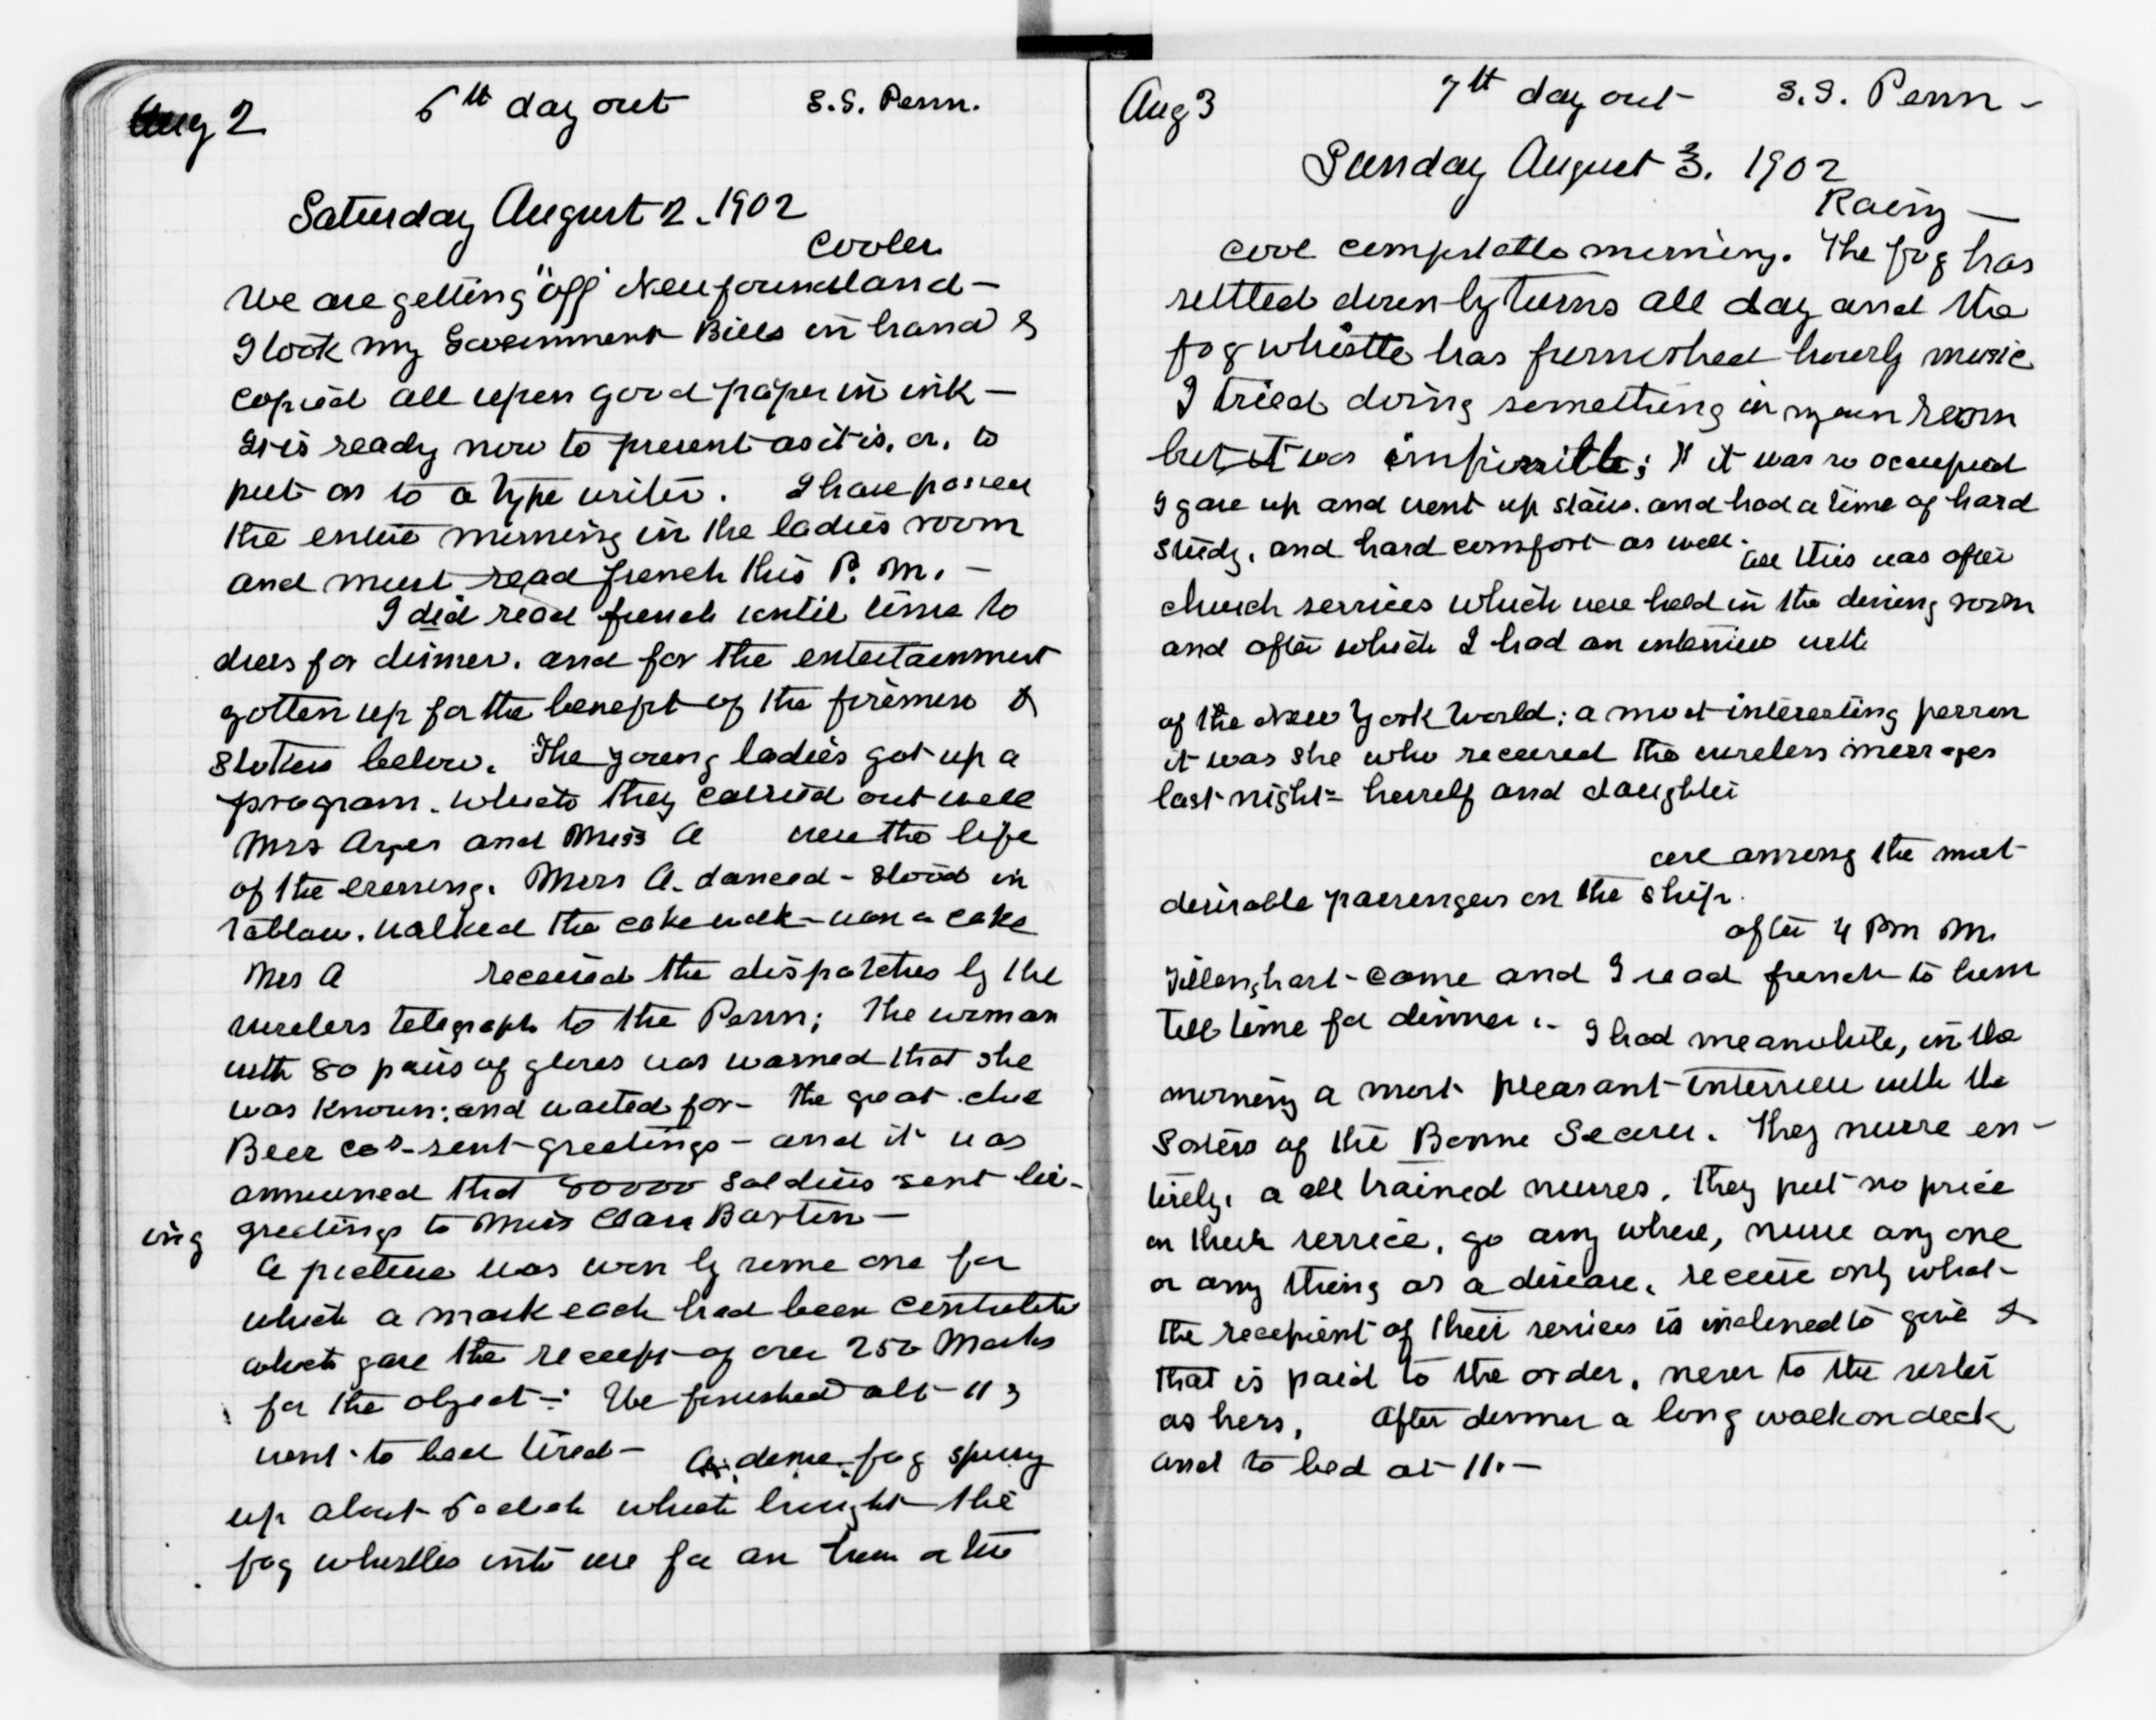 Aug 2 6th day out S.S. Penn.
Saturday August 2. 1902
Cooler
We are getting "off" Newfoundland -
I took my Government Bills in hand &
copied all upon good paper in ink -
It is ready now to present as it is, or, to
put on to a type writer. I have passed
the entire morning in the ladies room
and must read french this P. M. -
I did read french until time to
dress for dinner. and for the entertainment
gotten up for the benefit of the firemen &
Stokers below. The young ladies got up a
program. which they carried out well
Mrs Ayer and Miss A were the life
of the evening. Miss A. danced - stood in
tableau. walked the cake walk - won a cake
Mrs A received the dispatches by the
wireless telegraph to the Penn; The woman
with 80 pairs of gloves was warned that she
was known: and waited for - The great
Beer cos - sent greetings - and it was
announced that 80000 soldiers sent liv-
ing greetings to Miss Clara Barton -
A picture was won by some one for
which a mark each had been contributed
which gave the receipt of over 250 Marks
for the object -: We finished at 11 &
went to bed tired - A dense fog sprung
up about 5 oclock which brought the
fog whistles into use for an hour or two
Aug 3 7th day out - S.S. Penn -
Sunday August 3. 1902
Rainy -
cool comfortable morning. The fog has
settled down by turns all day and the
fog whistle has furnished hourly music
I tried doing something in my own room
but it was impossible; it was so occupied
I gave up and went up stairs. and had a time of hard
study, and hard comfort as well. all this was after
church services which were held in the dining room
and after which I had an interview with
of the New York World; a most interesting person
it was she who received the wireless messages
last night = herself and daughter
are among the most
desirable passengers on the ship.
after 4 Pm M.
Tillenghast - came and I read french to him
till time for dinner .- I had meanwhile, in the
morning a most pleasant interview with the
Sisters of the Bonne Secour. They nurse en-
tirely. a all trained nurses, they put no price
on their service, go any where, nurse any one
or any thing as a disease, receive only what
the recepient of their services is inclined to give &
that is paid to the order, never to the sister
as hers, After dinner a long walk on deck
and to bed at 11.-